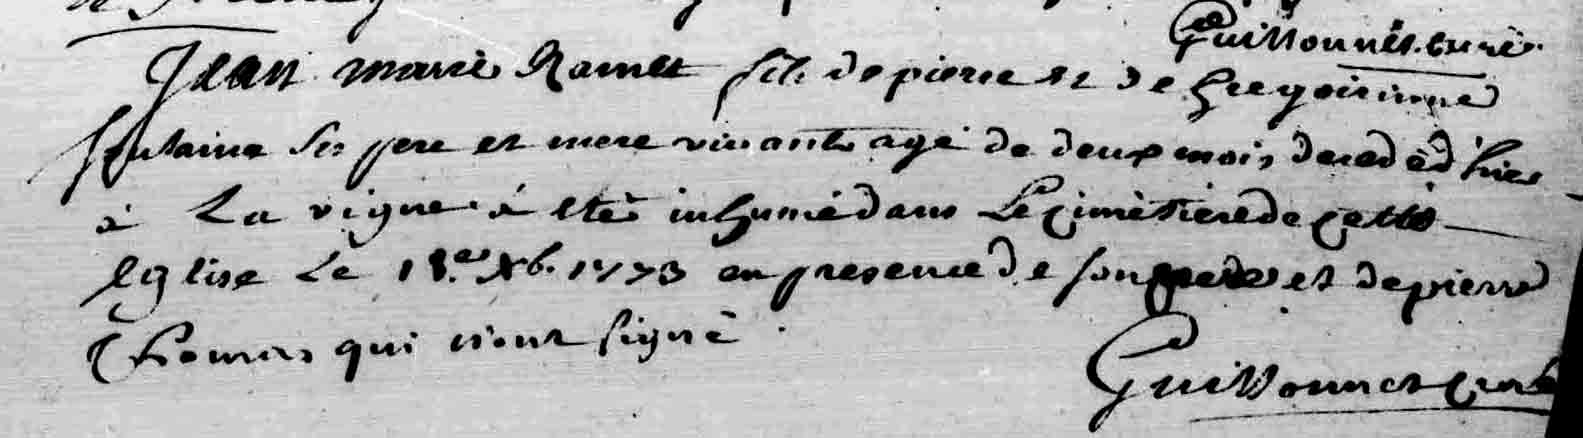 Guissonnet curé
Jean marie Ramet fils de pierre et de Gregoirinne
fontaine ses pere et mere vivants agé de deux mois decedé d'hier
à La vigne à étè inhumé dans Le cimetiere de cette
Eglise Le 18.e Xb. 1773 en presence de son pere et de pierre
Thomas qui n'ont signè
Guissonnet curé